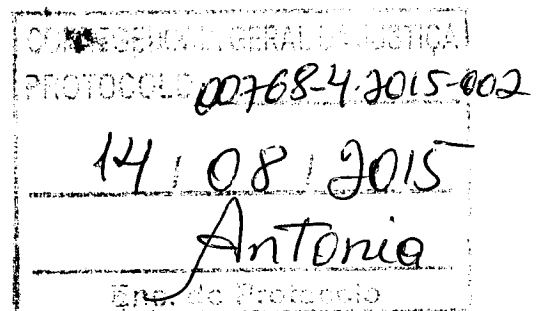 CORREGEDORIA GERAL DA JUSTIÇA
PROTOCOLO 00768-4.2015-002
14 / 08 / 2015
Antonia
Enc. do Protocolo